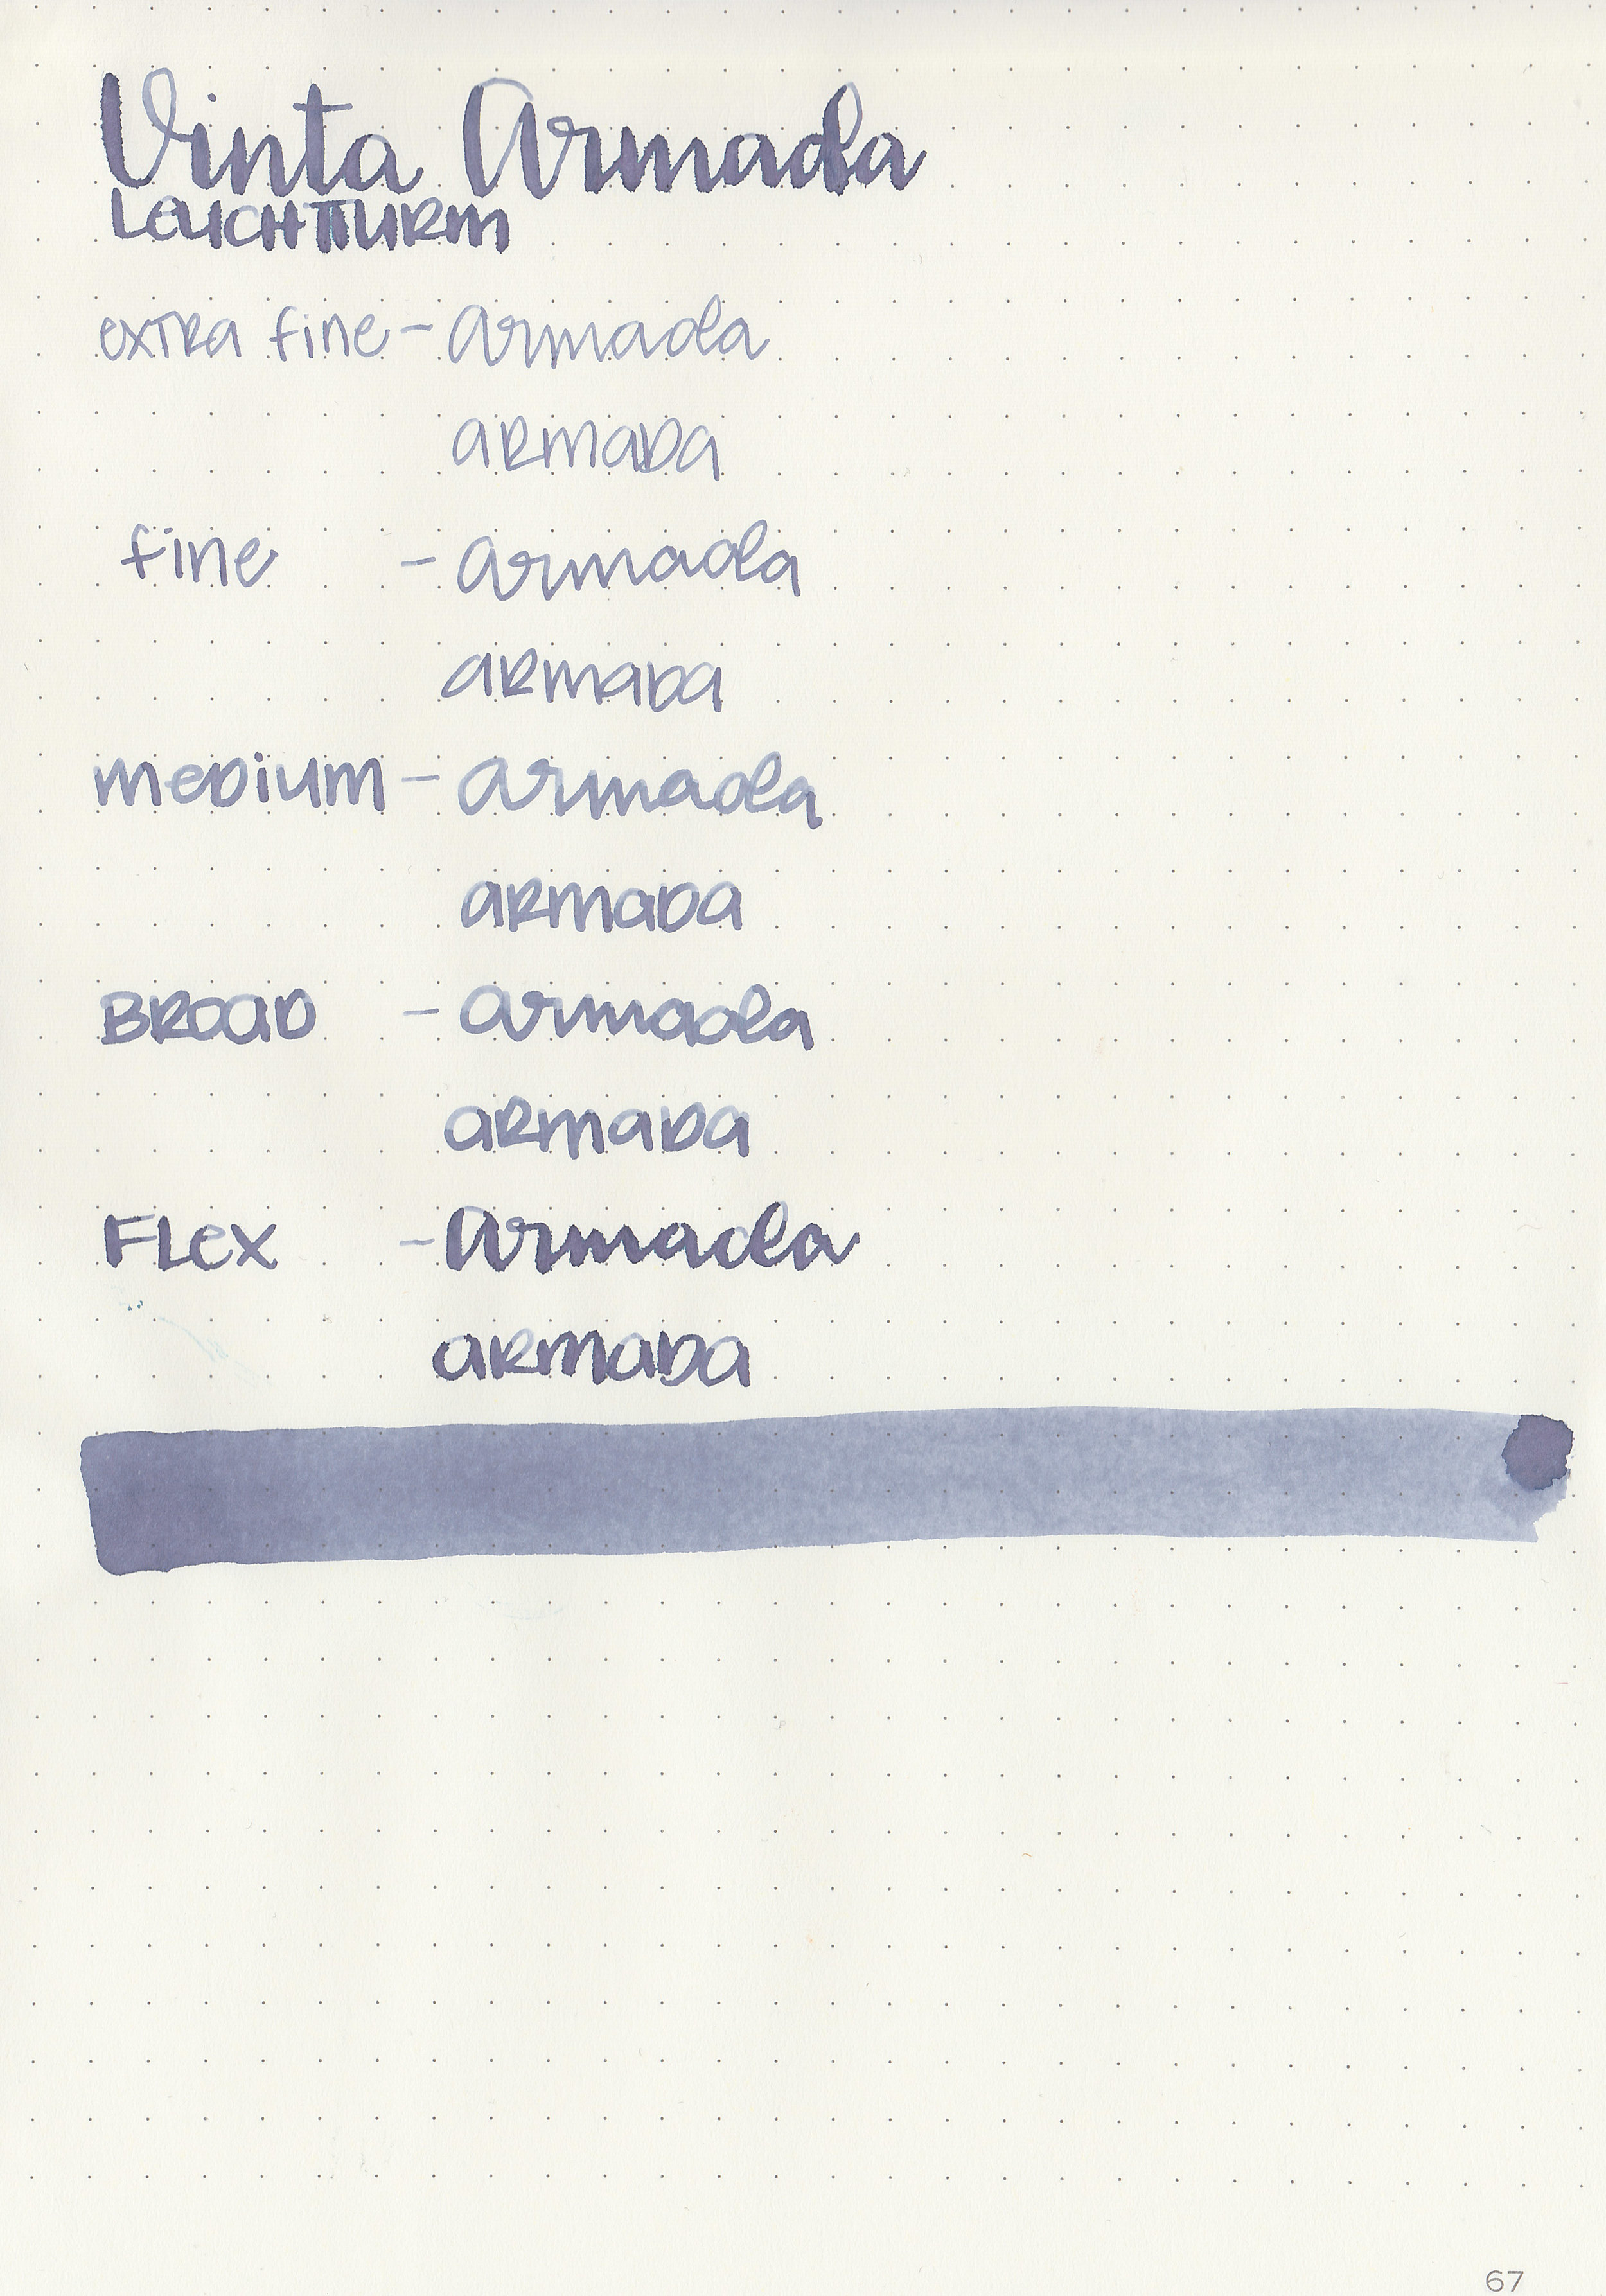 Vinta Armada
LEUCHTTURM
extra fine - armada
armada
fine - armada
armada
medium - armada
armada
BROAD - armada
armada
FLex - armada
armada
67